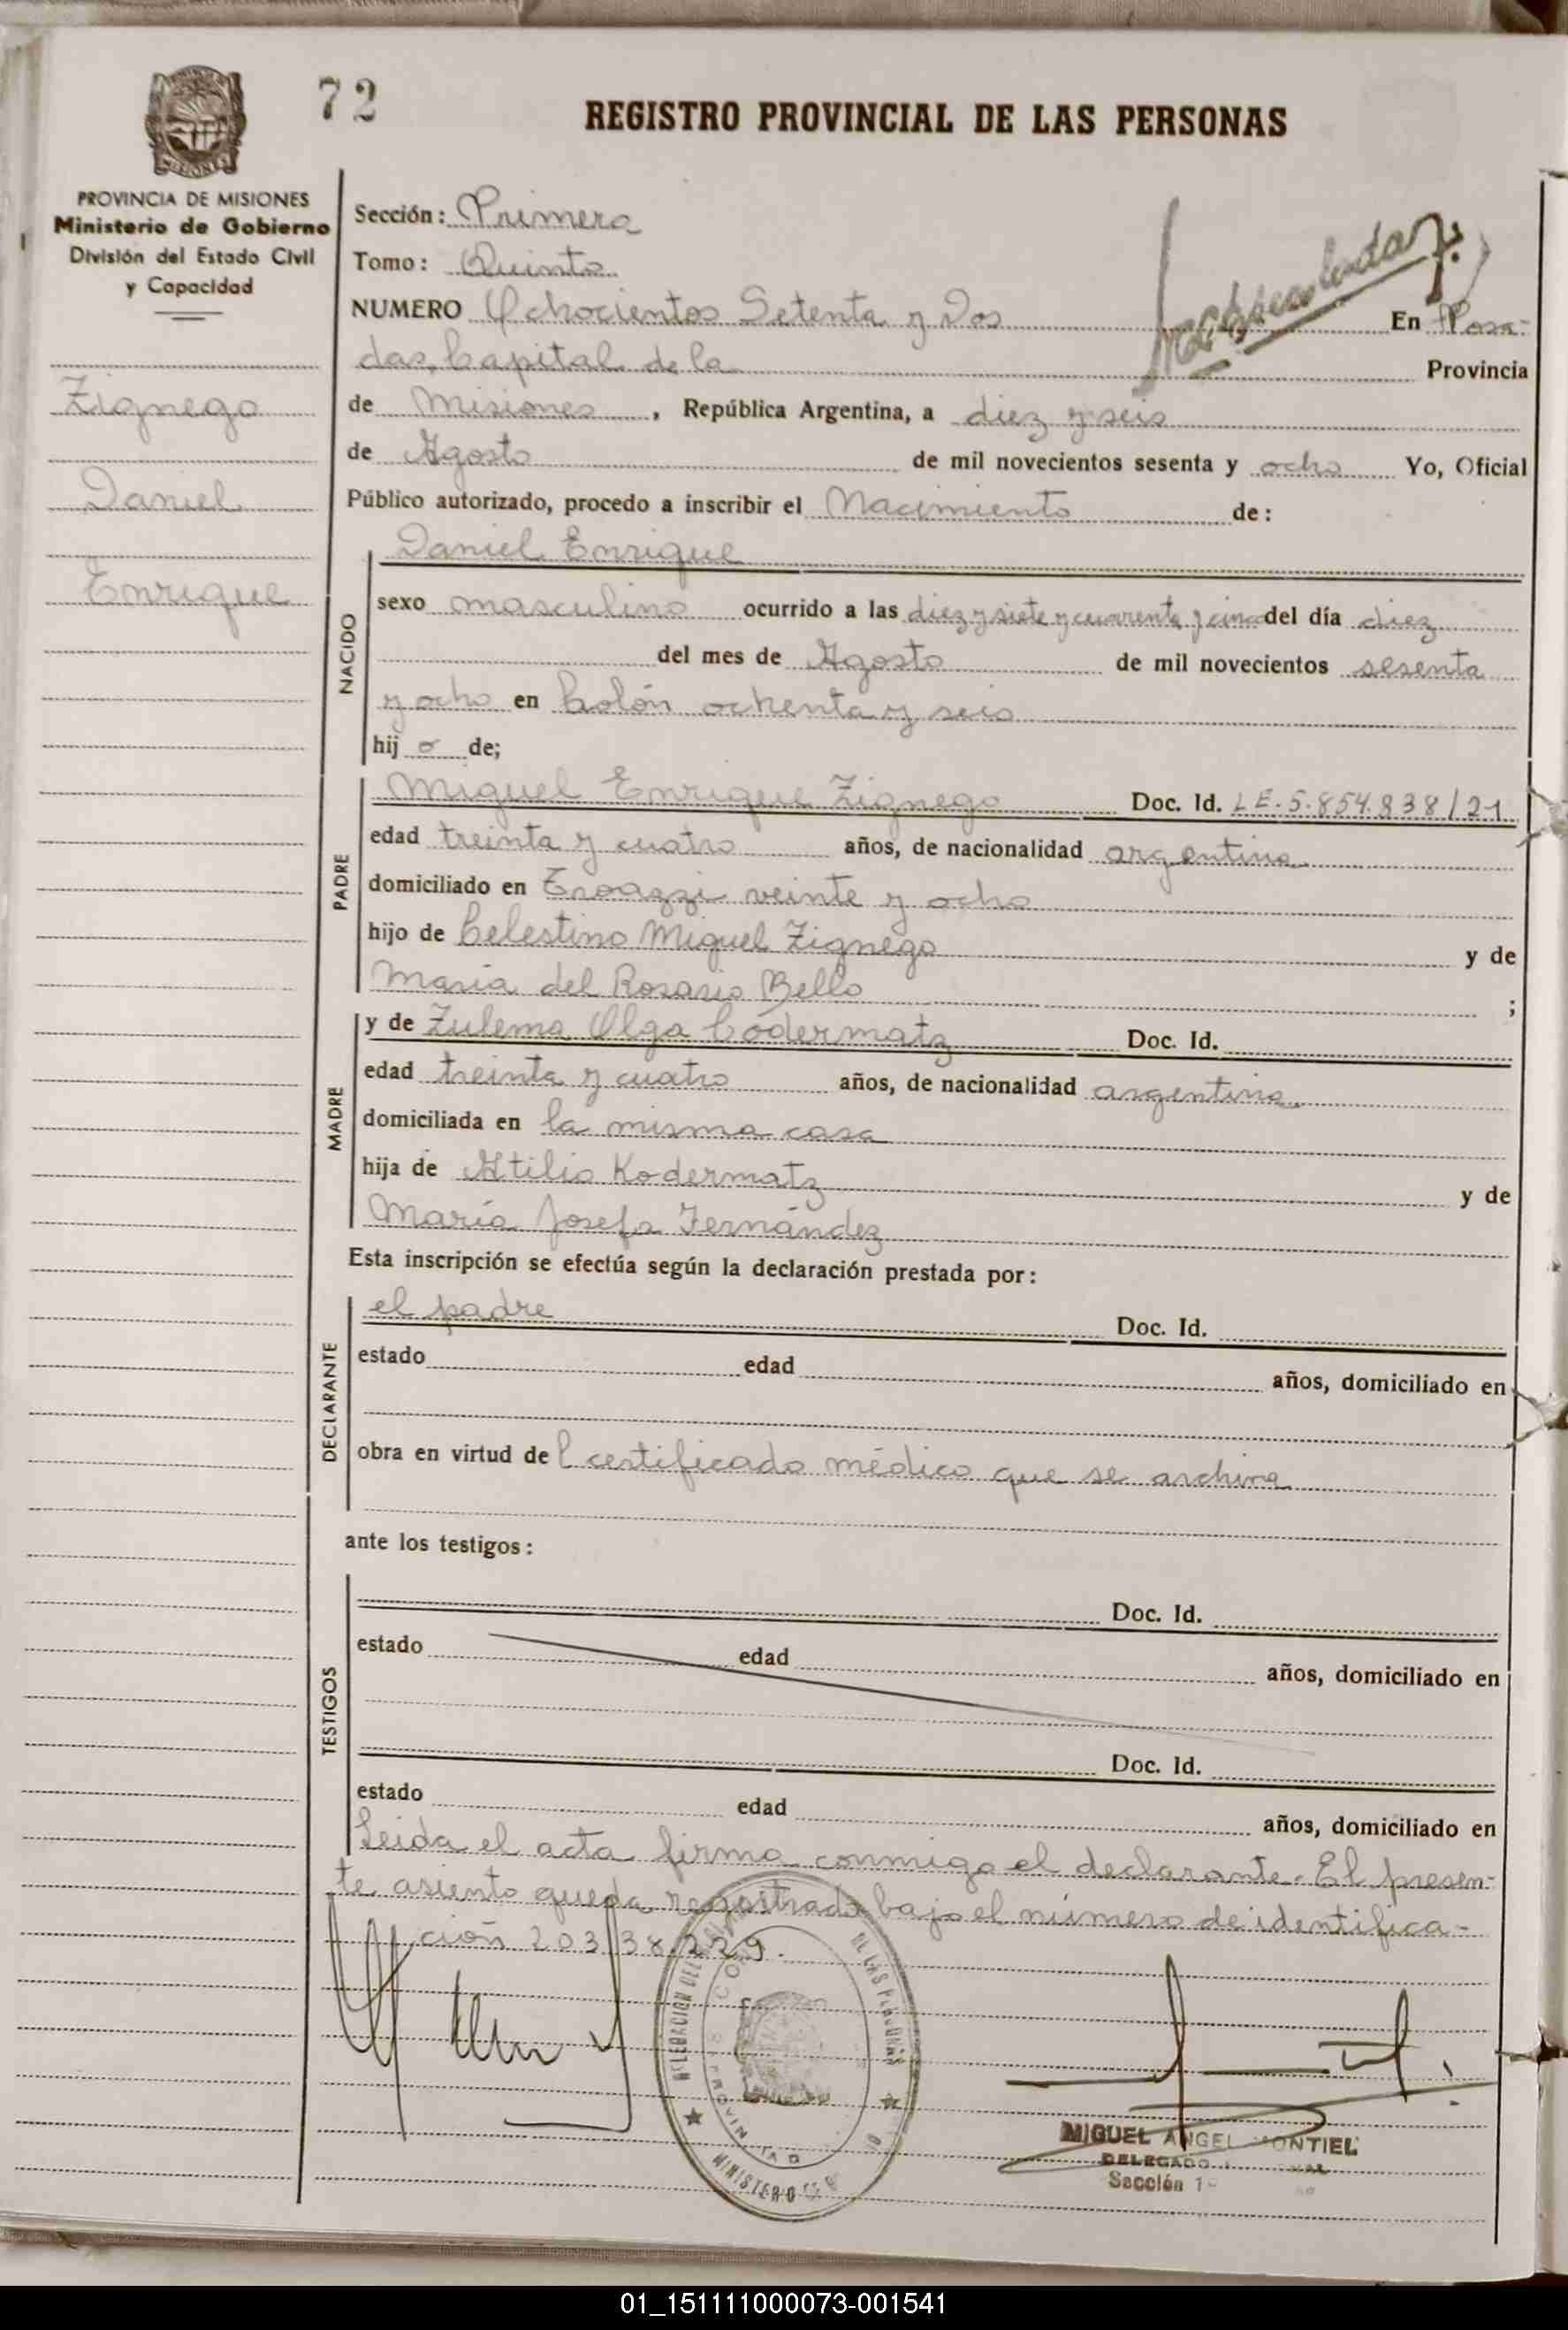 72
REGISTRO PROVINCIAL DE LAS PERSONAS
MISIONES
PROVINCIA DE MISIONES
Ministerio de Gobierno
División del Estado Civil
y Capacidad
Zignego
Daniel
Enrique
Sección: Primera
Tomo: Quinto
NUMERO Ochocientos Setenta y Dos En Posa-
das, Capital de la Provincia
de Misiones, República Argentina, a diez y seis
de Agosto de mil novecientos sesenta y ocho Yo, Oficial
Público autorizado, procedo a inscribir el Nacimiento de:
NACIDO
Daniel Enrique
sexo masculino ocurrido a las diez y siete y cuarenta y cinco del día diez
del mes de Agosto de mil novecientos sesenta
y ocho en Colón ochenta y seis
hij o de;
PADRE
Miguel Enrique Zignego Doc. Id. LE. 5.854.838/21
edad treinta y cuatro años, de nacionalidad argentina
domiciliado en veinte y ocho
hijo de Celestino Miguel Zignego y de
María del Rosario Bello ;
MADRE
y de Zulema Olga Codermatz Doc. Id.
edad treinta y cuatro años, de nacionalidad argentina
domiciliada en la misma casa
hija de Atilio Kodermatz y de
María Josefa Fernández
Esta inscripción se efectúa según la declaración prestada por:
DECLARANTE
el padre Doc. Id.
estado edad años, domiciliado en
obra en virtud de l certificado médico que se archiva
ante los testigos:
TESTIGOS
Doc. Id.
estado edad años, domiciliado en
Doc. Id.
estado edad años, domiciliado en
Leida el acta firma conmigo el declarante. El presen-
te asiento queda registrado bajo el número de identifica-
ción 20338.229.
DE LAS PERSONAS
MINISTERIO
MIGUEL ANGEL MONTIEL
DELEGADO
Sección 1
01_151111000073-001541